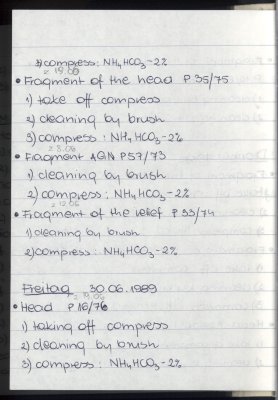 3) compress: NH4HCO3-2%
≈ 19.06
• Fragment of the head P 35/75
1) take off compress
2) cleaning by brush
3) compress: NH4HCO3-2%
≈ 8.06
• Fragment AQN P57/73
1) cleaning by brush
2) compress: NH4HCO3-2%
≈ 12.06
• Fragment of the relief P 33/74
1) cleaning by brush
2) compress: NH4HCO3-2%
Freitag 30.06.1989
• Head P 16/76
1) taking off compress
2) cleaning by brush
3) compress: NH4HCO3-2%